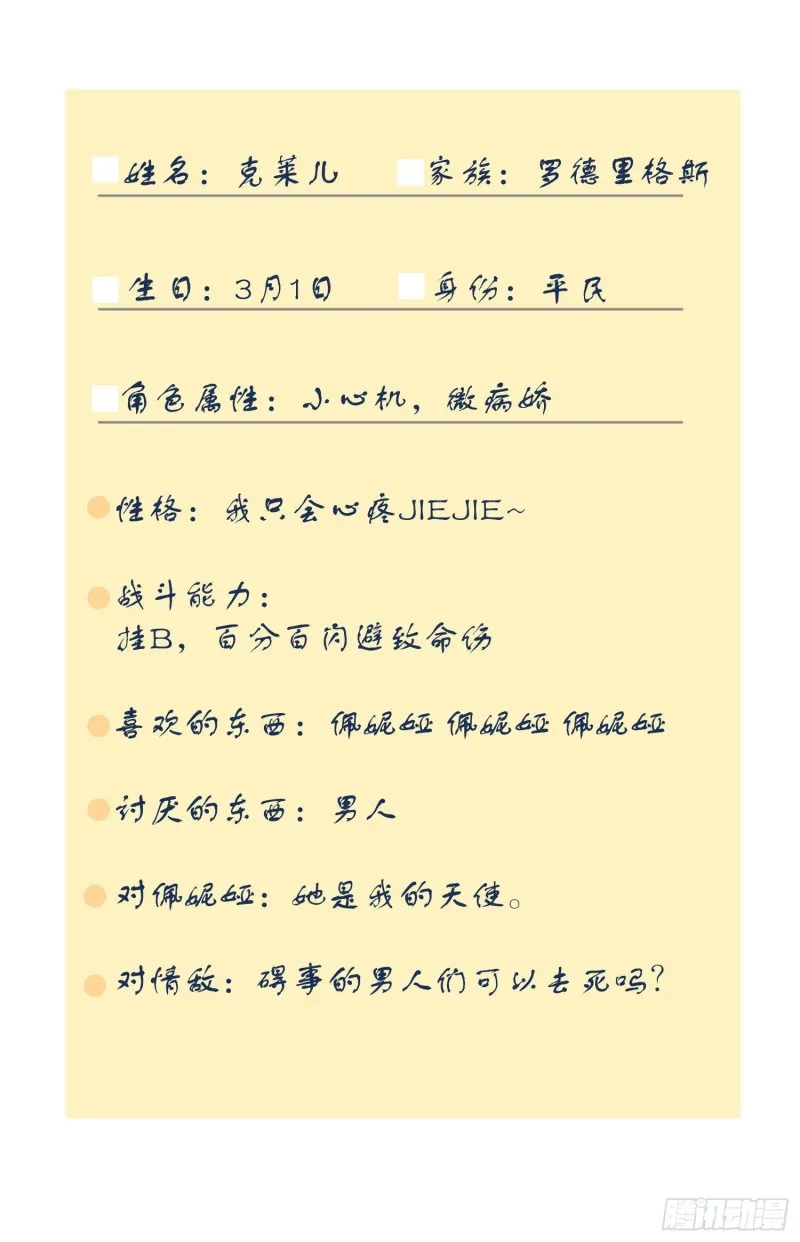 姓名：克莱儿 家族：罗德里格斯
生日：3月1日 身份：平民
角色属性：小心机，微病娇
性格：我只会心疼JIEJIE~
战斗能力：
挂B，百分百闪避致命伤
喜欢的东西：佩妮娅 佩妮娅 佩妮娅
讨厌的东西：男人
对佩妮娅：她是我的天使。
对情敌：碍事的男人们可以去死吗？
腾讯动漫